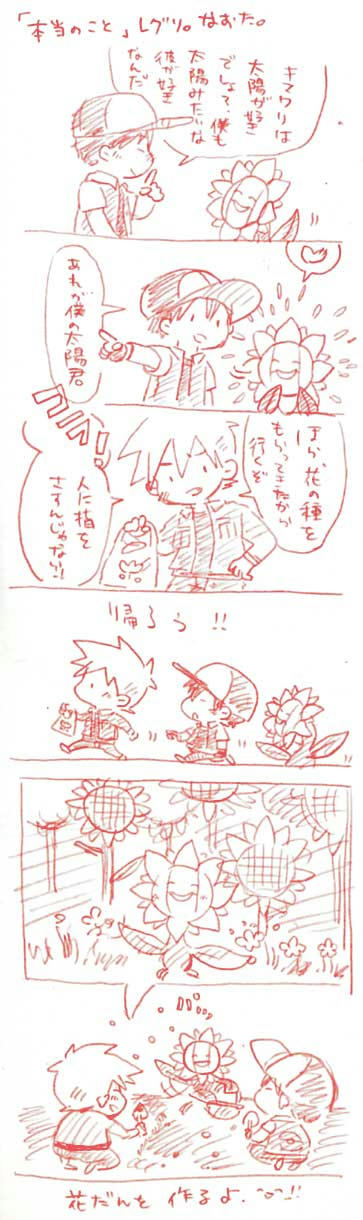 「本当のこと」レグリ。なおた。
キマワリは
太陽が好き
でしょて、僕も
太陽みたいな
彼が好き
なんだ
あれが僕の太陽君
ほら、花の種を
もらってきたから
行くぞ
コラ!
人に指を
さすんじゃない!!
帰ろう!!
パッ
花だんを 作るよ.^o^!!